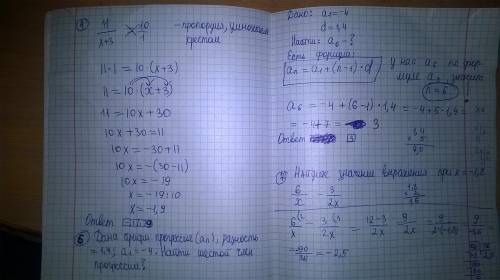 ④ 11/(x+3) 10/1 – пропорция, умножаем
крестом
11·1 = 10·(x+3)
11 = 10·(x+3)
11 = 10x + 30
10x + 30 = 11
10x = -30 + 11
10x = -(30-11)
10x = -19
x = -19:10
x = -1,9
Ответ
⑥ Дана прогрессия (an), разность
= 1,4, a1 = -4. Найти шестой член
прогрессии?
Дано: a1 = -4
d = 1,4
Найти: a6 - ?
Есть формула:
an = a1 + (n-1)·d
У нас a6 по фор-
муле an, значит
n = 6
a6 = -4 + (6-1)·1,4 = -4 + 5·1,4 =
= -4 + 7 = 3
Ответ 3
⑦ Найдите значение выражения при x = -1,8
6/x - 3/2x
6/x - 3/2x = (12-3)/2x = 9/2x = 9/(2·(-1,8))
= -90/36 = -2,5